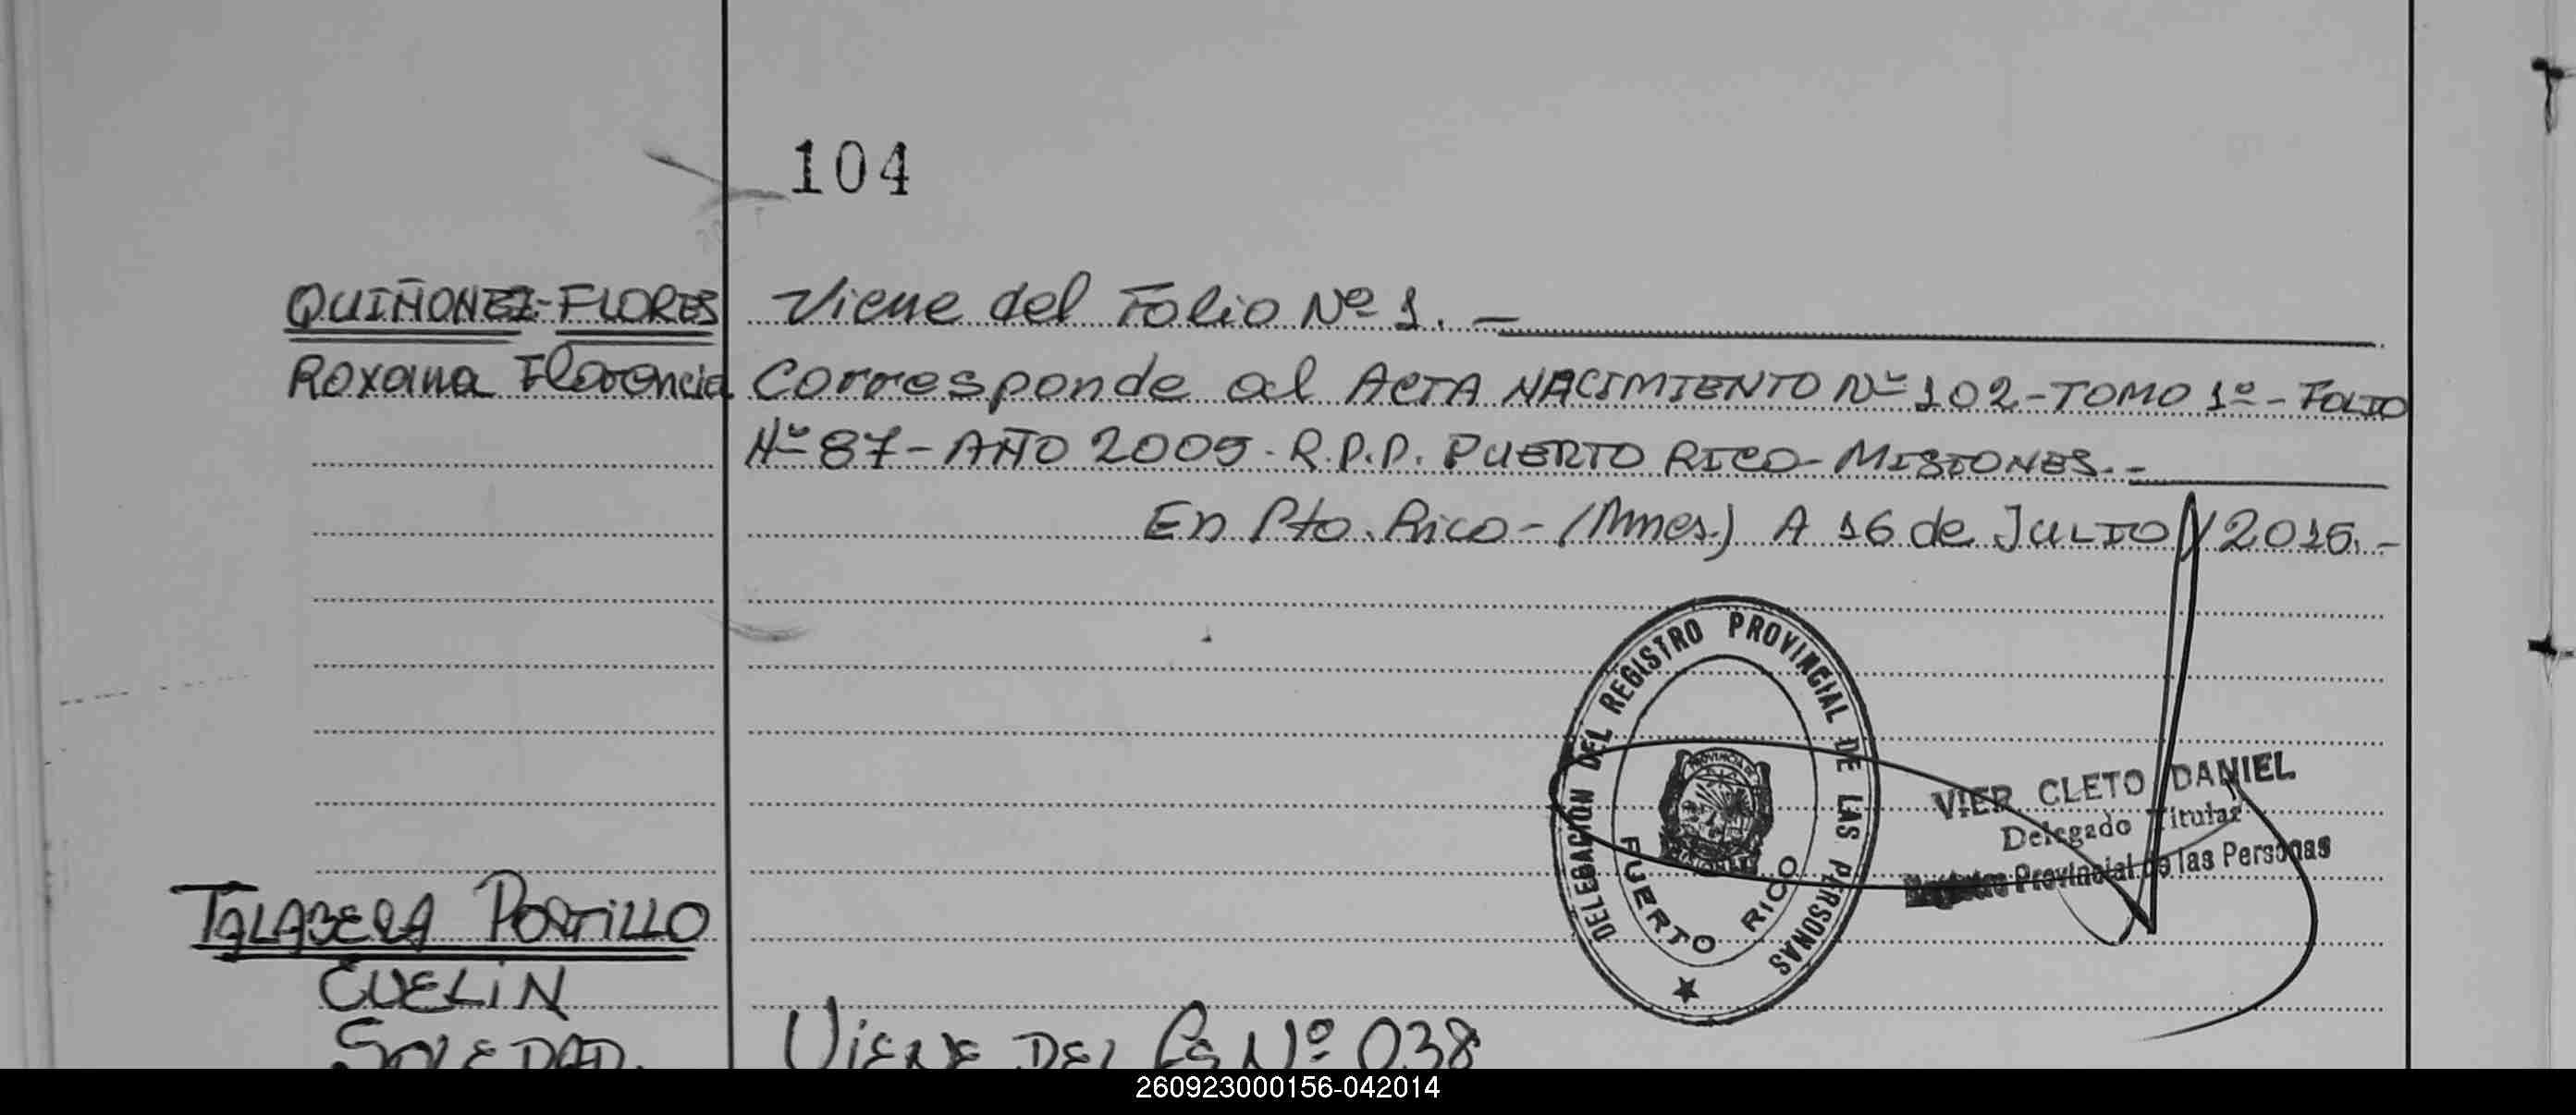 104
QUIÑONEZ-FLORES Viene del Folio Nº 1. —
Roxana Florencia Corresponde al ACTA NACIMIENTO Nº 102-TOMO 1º-FOLIO
Nº 87-AÑO 2005-R.P.P. PUERTO RICO-MISIONES.-
En Pto. Rico-(Mnes.) A 16 de JULIO 2015.-
DELEGACION DEL REGISTRO PROVINCIAL DE LAS PERSONAS
PUERTO RICO
VIER CLETO DANIEL
Delegado Titular
Registro Provincial de las Personas
TALABERA PORTILLO
EVELIN
SOLEDAD. VIENE DEL Fs Nº 038
260923000156-042014